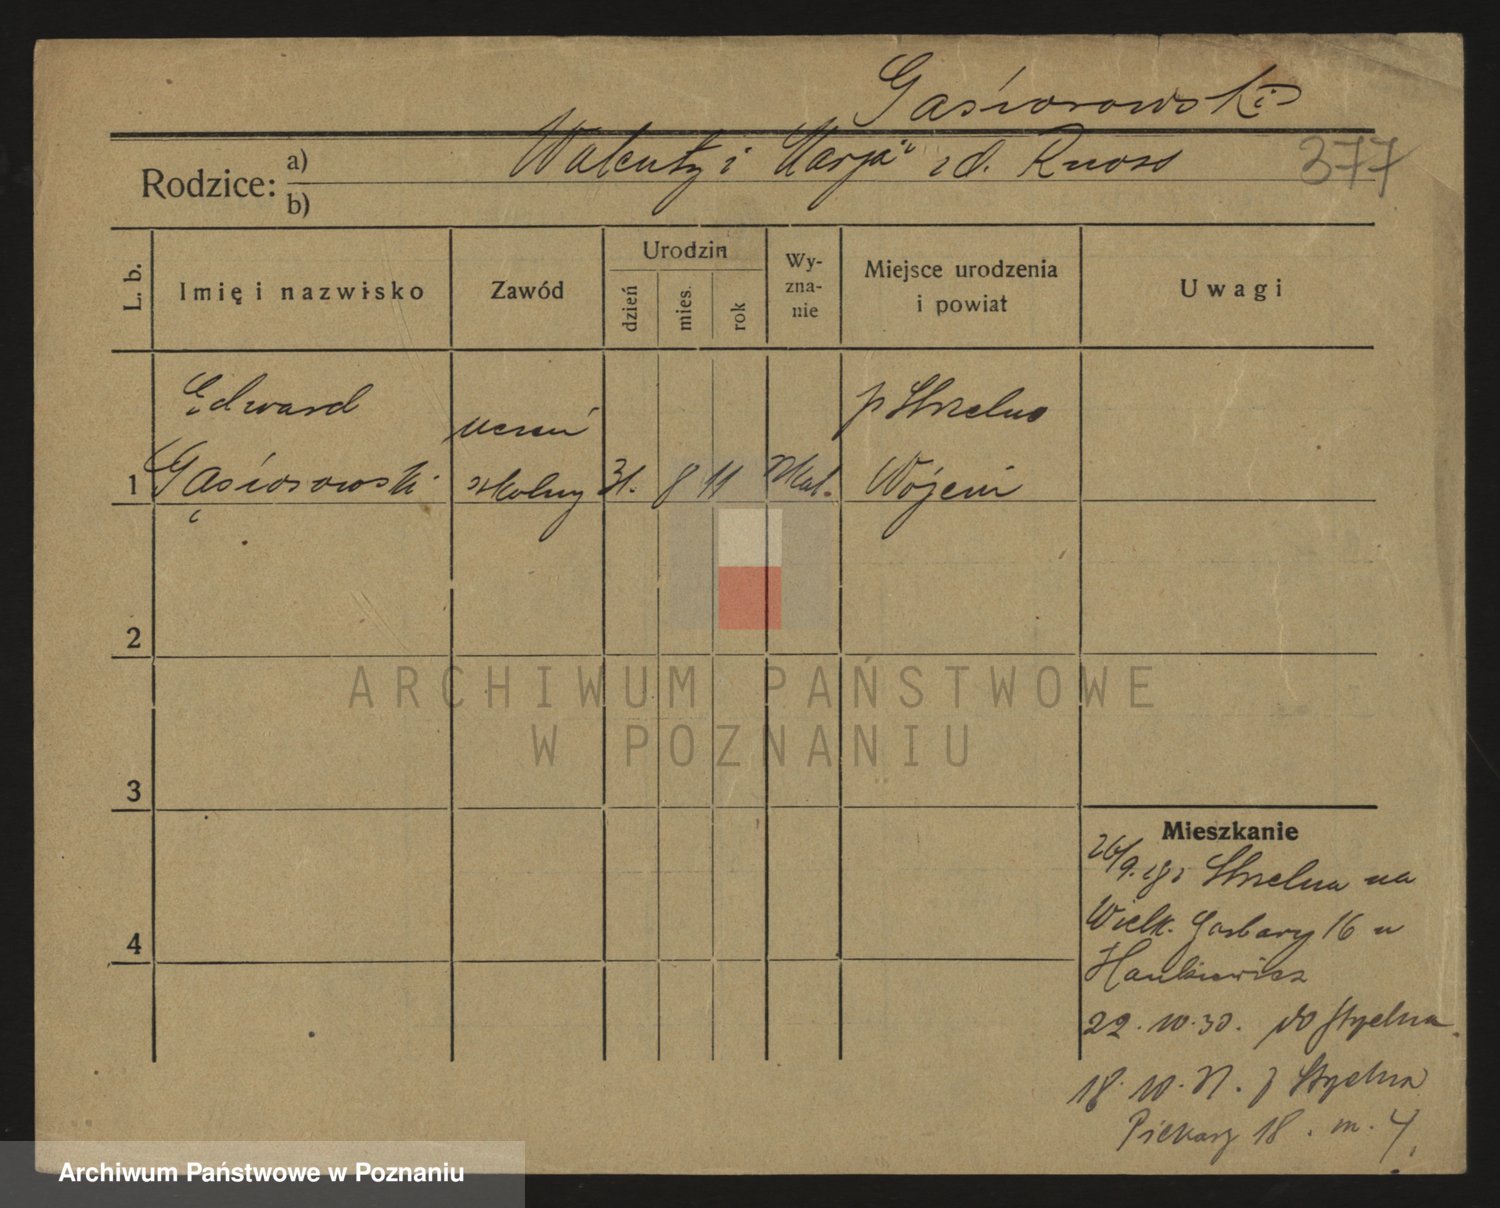 Gąsiorowski
377
Rodzice: a) Walenty i Marja z d. Knoss
b)
L. b.
Imię i nazwisko
Zawód
Urodzin
dzień
mies.
rok
Wy-
zna-
nie
Miejsce urodzenia
i powiat
Uwagi
1
Edward
Gąsiorowski
uczeń
szkolny
31. 8 11
p Strzelno
Wójcin
2
3
4
Mieszkanie
26/9. z Strzelna na
Wielk. Garbary 16 u
22.10.30. do Strzelna.
18.10. z Strzelna
Piekary 18. m. 4
ARCHIWUM PAŃSTWOWE
W POZNANIU
Archiwum Państwowe w Poznaniu